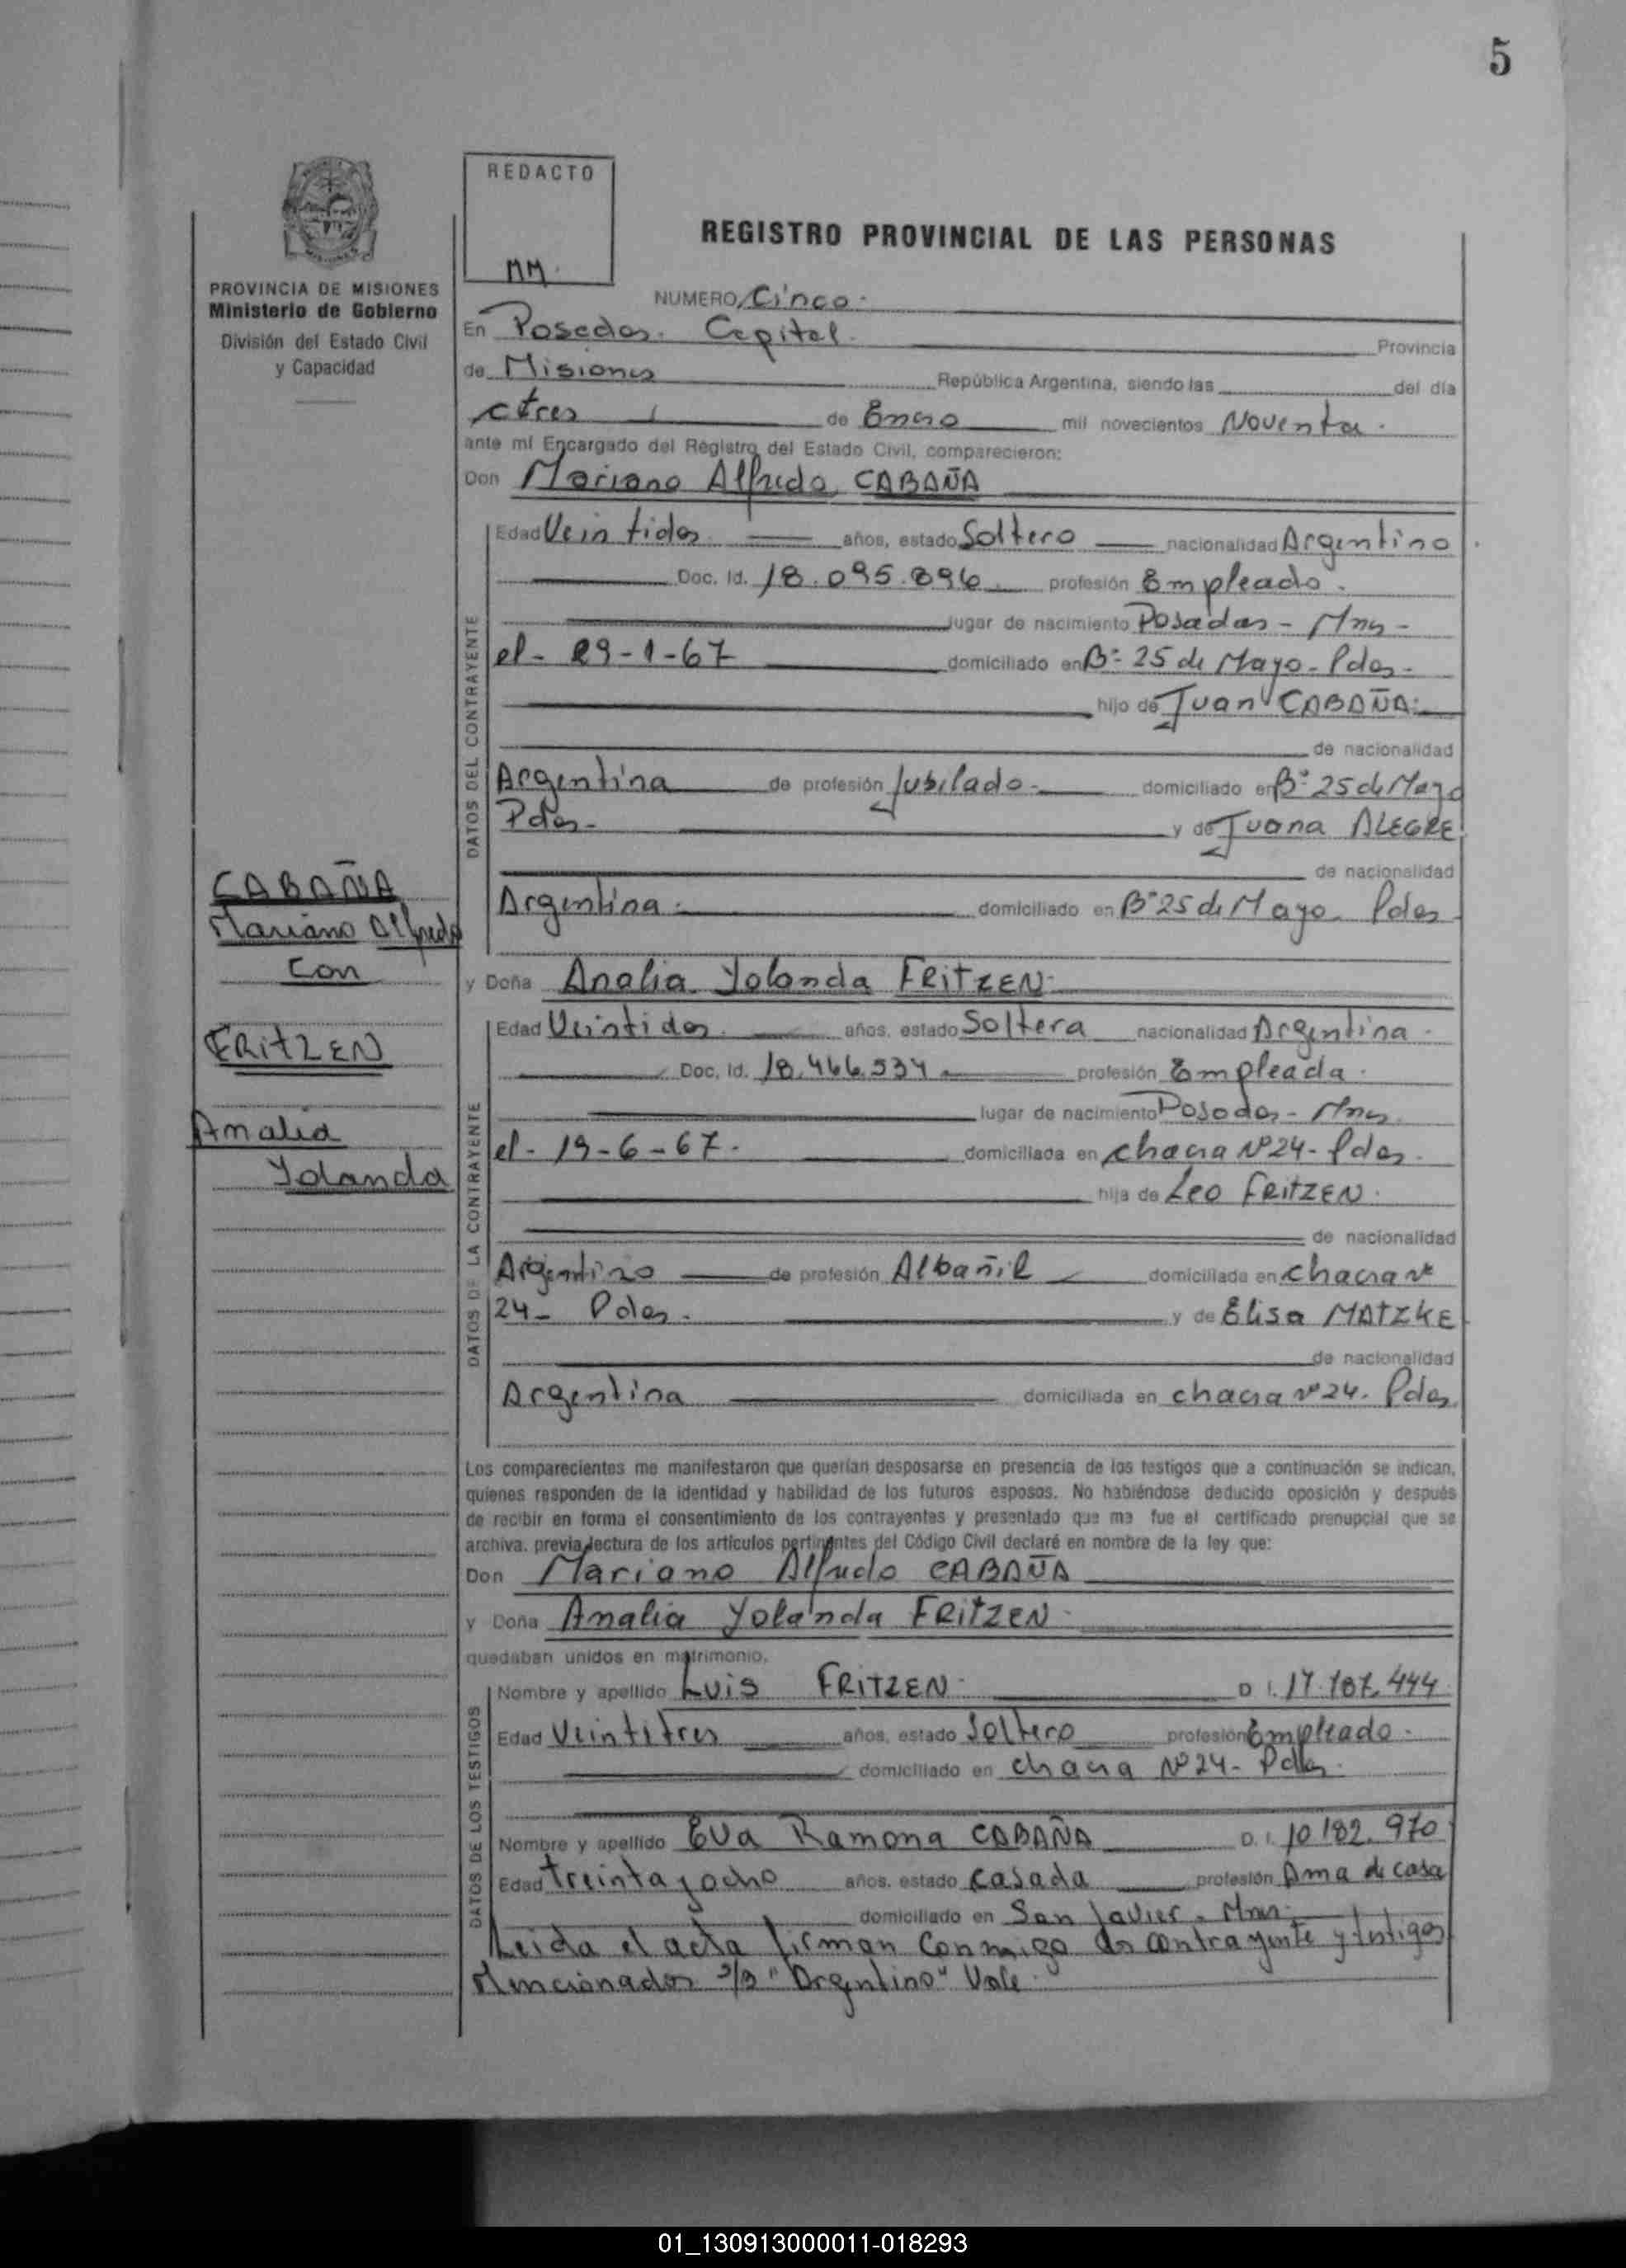 5
REDACTO
MM.
REGISTRO PROVINCIAL DE LAS PERSONAS
PROVINCIA DE MISIONES
Ministerio de Gobierno
División del Estado Civil
y Capacidad
NUMERO Cinco.
En Posadas. Capital. Provincia
de Misiones República Argentina, siendo las del día
tres de Enero mil novecientos Noventa.
ante mí Encargado del Registro del Estado Civil, comparecieron:
Don Mariano Alfredo CABAÑA
DATOS DEL CONTRAYENTE
Edad Veintidos años, estado Soltero nacionalidad Argentino
Doc. Id. 18.095.896 profesión Empleado.
lugar de nacimiento Posadas - Mnes -
el - 29-1-67 domiciliado en Bº 25 de Mayo - Pdas -
hijo de Juan CABAÑA.
de nacionalidad
Argentina de profesión Jubilado - domiciliado en Bº 25 de Mayo
Pdas - y de Juana ALEGRE
de nacionalidad
Argentina. domiciliado en Bº 25 de Mayo Pdas
CABAÑA
Mariano Alfredo
Con
FRITZEN
Analia
Yolanda
y Doña Analia Yolanda FRITZEN
DATOS DE LA CONTRAYENTE
Edad Veintidos. años, estado Soltera nacionalidad Argentina.
Doc. Id. 18.466.534 profesión Empleada.
lugar de nacimiento Posadas - Mnes.
el - 19-6-67. domiciliada en chacra Nº 24 - Pdas.
hija de Leo FRITZEN.
de nacionalidad
Argentino de profesión Albañil domiciliada en chacra nº
24 - Pdas. y de Elisa MATZKE
de nacionalidad
Argentina domiciliada en chacra nº 24. Pdas.
Los comparecientes me manifestaron que querían desposarse en presencia de los testigos que a continuación se indican,
quienes responden de la identidad y habilidad de los futuros esposos. No habiéndose deducido oposición y después
de recibir en forma el consentimiento de los contrayentes y presentado que me fue el certificado prenupcial que se
archiva, previa lectura de los artículos pertinentes del Código Civil declaré en nombre de la ley que:
Don Mariano Alfredo CABAÑA
y Doña Analia Yolanda FRITZEN
quedaban unidos en matrimonio.
DATOS DE LOS TESTIGOS
Nombre y apellido Luis FRITZEN D. I. 17.187.444
Edad Veintitres años, estado Soltero profesión Empleado.
domiciliado en chacra Nº 24 - Pdas.
Nombre y apellido Eva Ramona CABAÑA D. I. 10.182.970
Edad treinta y ocho años, estado Casada profesión Ama de casa
domiciliado en San Javier - Mnes.
Leida el acta firman conmigo los contrayente y testigos
Mencionados s/b "Argentino" Vale.
01_130913000011-018293